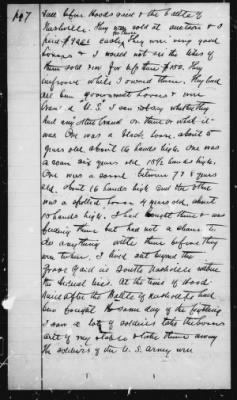 147
fall before Hoods raid & the battle of
Nashville. They were sold at auction & I
paid $ each for them. They were very good
horses & I would not see the likes of
them sold now for less than $150. They
improved while I owned them. They had
all been government horses & were
brand'd "U.S." I can not say whether they
had any other brand on them or what it
was. One was a black horse about 5
years old about 16 hands high. One was
a roan six years old 15½ hands high.
One was a sorrel between 7 & 8 years
old, about 16 hands high and the other
was a spotted horse 4 years old, about
15 hands high. I had bought them & was
feeding them but had not a chance to
do anything with them before they
were taken. I lived out beyond the
in South Nashville within
the Federal lines. At the time of Hood
raid after the Battle of Nashville had
been fought & some day of the fighting
I saw a lot of soldiers take the horses
out of my stable & take them away
the soldiers of the U.S. Army were